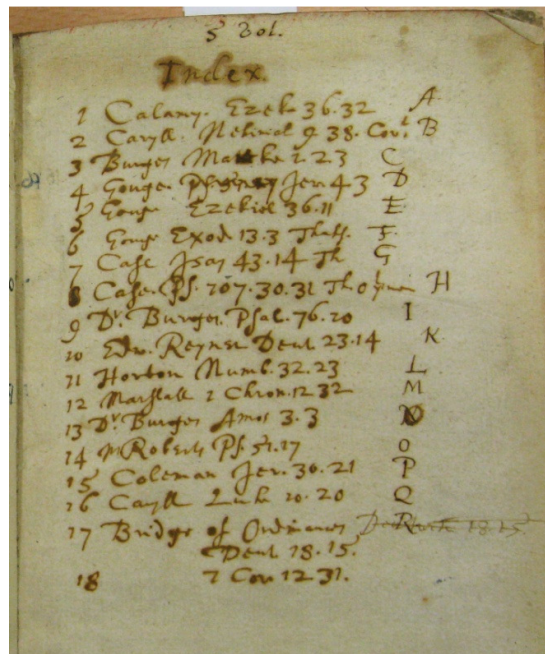 5 Vol.
Index.
1 Calamy. Ezek. 36.32 A
2 Caryll. Nehemi 9 38. Covt B
3 Burges 2.23 C
4 Gouge Jer. 43 D
5 Gouge Ezekiel 36.11 E
6 Gouge Exod. 13.3 Thaks. F
7 Case Isay 43.14 Th G
8 Case. Ps. 107.30.31 H
9 Dr. Burges. Psal. 76.10 I
10 Edw. Reyner Deut 23.14 K
11 Horton Numb. 32.23 L
12 Marshall 1 Chron. 12 32 M
13 Dr Burges Amos 3.3 N
14 Mr Roberts Ps. 51.17 O
15 Coleman Jer. 30.21 P
16 Caryll Luk 10.20 Q
17 Bridge of Ordinances R
Deut 18.15.
18 1 Cor. 12 31.